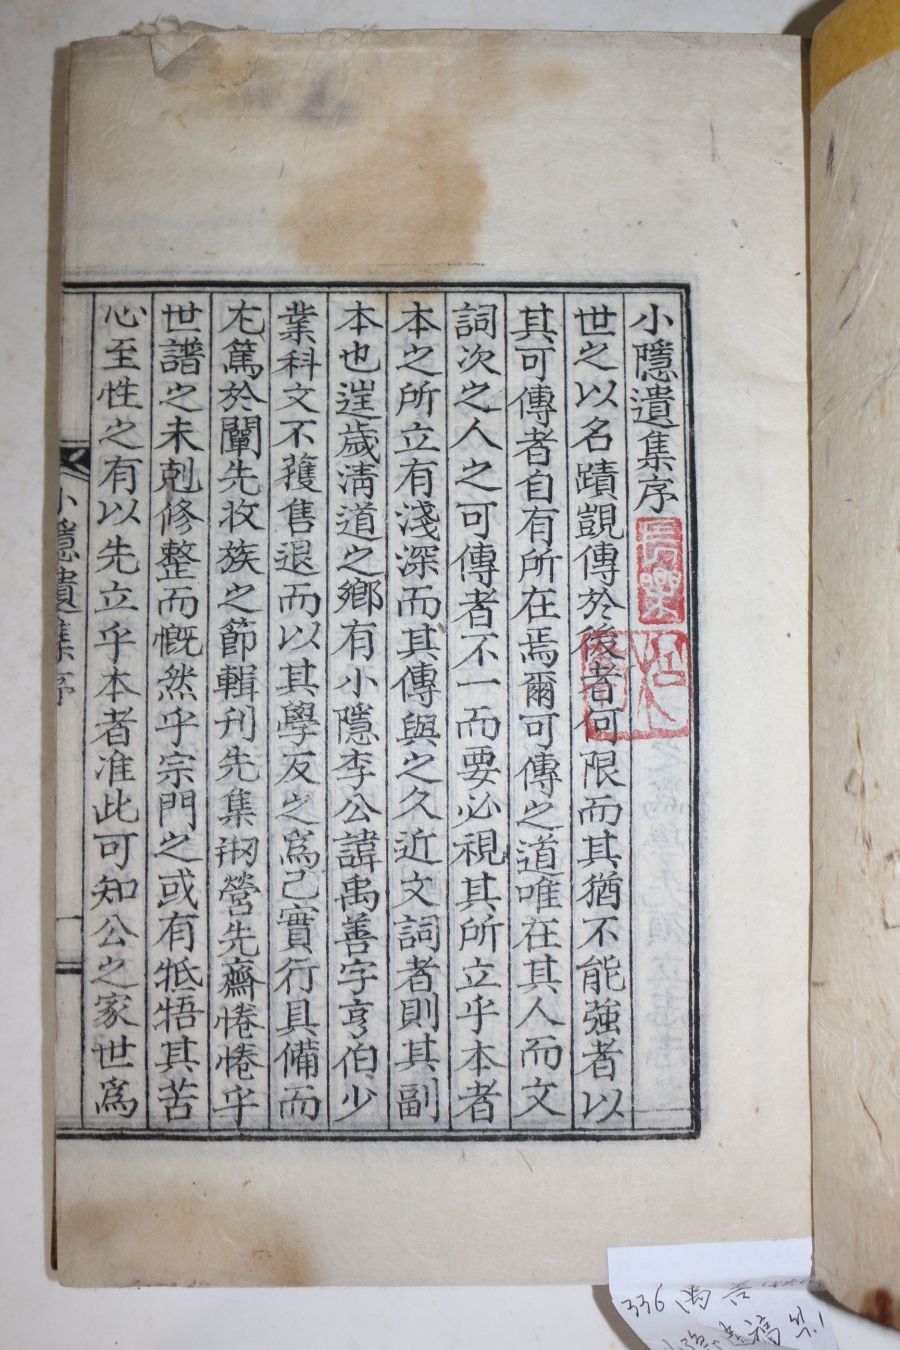 小隱遺集序
世之以名蹟覬傳於後者何限而其猶不能強者以
其可傳者自有所在焉爾可傳之道唯在其人而文
詞次之人之可傳者不一而要必視其所立乎本者
本之所立有淺深而其傳與之久近文詞者則其副
本也逞歲淸道之鄕有小隱李公諱禹善字亨伯少
業科文不獲售退而以其學反之爲己實行具備而
尤篤於闡先收族之節輯刊先集刱營先齋惓惓乎
世譜之未剋修整而慨然乎宗門之或有牴牾其苦
心至性之有以先立乎本者准此可知公之家世爲
小隱遺集序
336 禹善
小隱遺稿 1